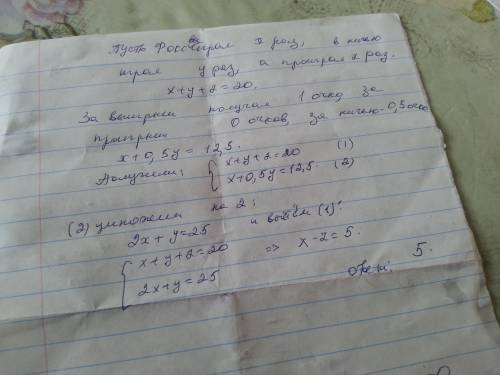 Пусть Фосс выиграл x раз, в ничью
играл y раз, а проиграл z раз.
x+y+z=20.
За выигрыш получал 1 очко, за
проигрыш 0 очков, за ничью - 0,5 очка
x+0,5y=12,5.
Получили: { x+y+z=20 (1)
x+0,5y=12,5. (2)
(2) умножим на 2; и вычтем (1):
2x+y=25
{ x+y+z=20 => x-z=5.
2x+y=25
Ответ: 5.